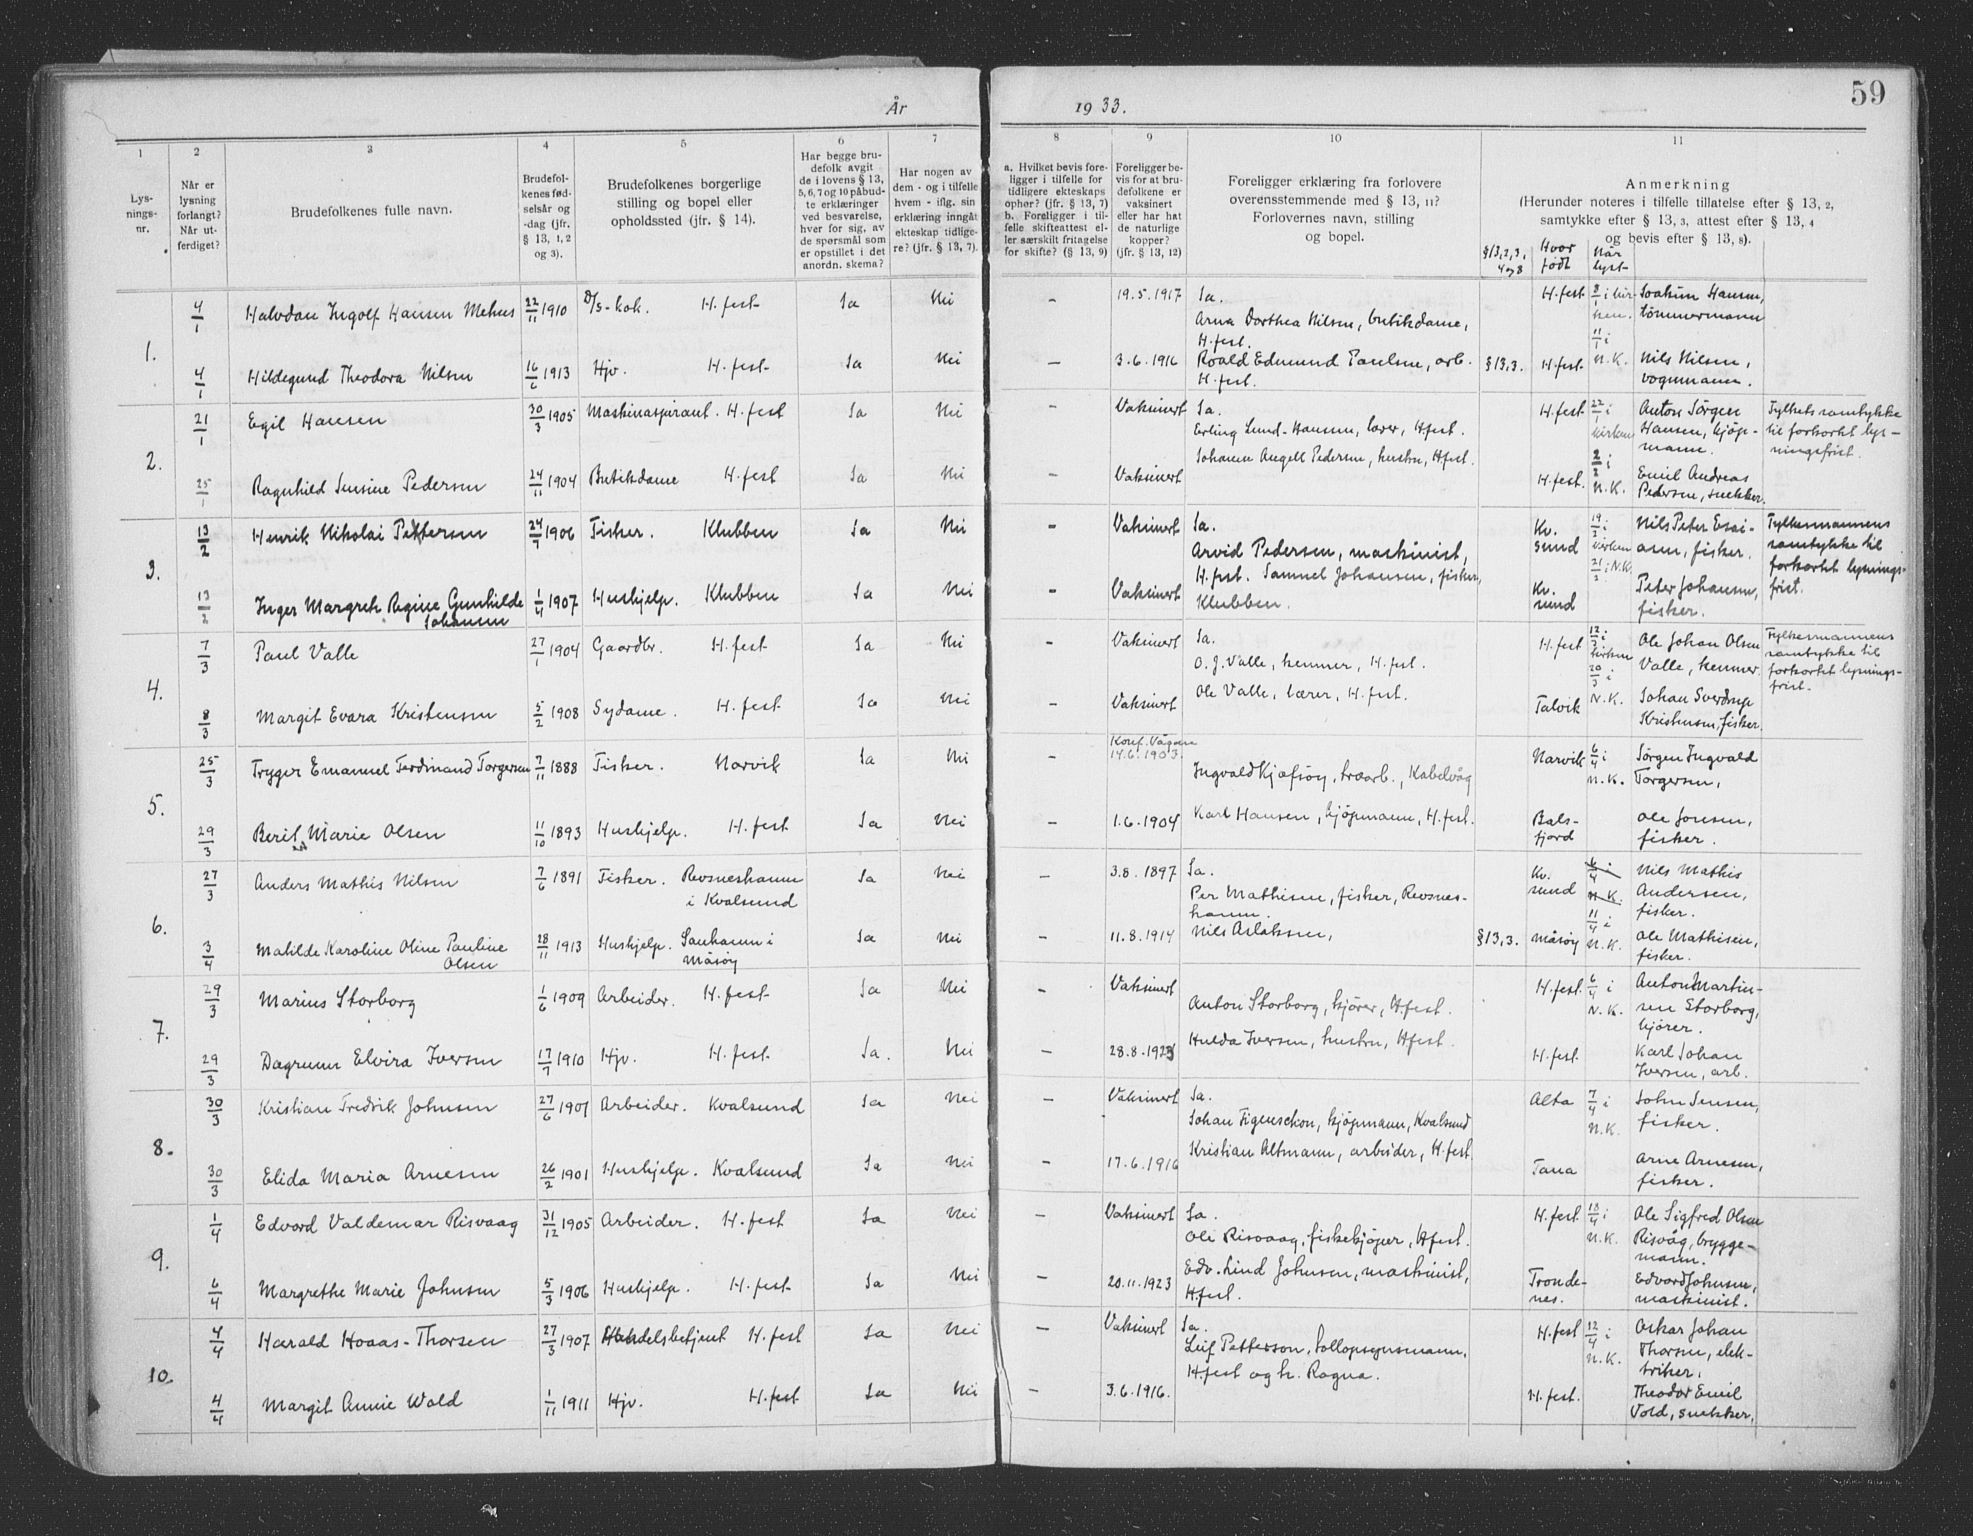 År 1933.
59
1 2 3 4 5 6 7 8 9 10 11
Lys-
nings-
nr.
Når er
lysning
forlangt?
Når ut-
ferdiget?
Brudefolkenes fulle navn.
Brudefol-
kenes fød-
selsår og
-dag (jfr.
§ 13, 1, 2
og 3).
Brudefolkenes borgerlige
stilling og bopel eller
opholdssted (jfr. § 14).
Har begge bru-
defolk avgit
de i lovens § 13,
5, 6, 7 og 10 påbud-
te erklæringer
ved besvarelse,
hver for sig, av
de spørsmål som
er opstillet i det
anordn. skema?
Har nogen av
dem - og i tilfelle
hvem - iflg. sin
erklæring inngått
ekteskap tidlige-
re? (jfr. § 13, 7).
a. Hvilket bevis fore-
ligger i tilfelle for
tidligere ekteskaps
ophør? (jfr. § 13, 7)
b. Foreligger i til-
felle skifteattest el-
ler særskilt fritagelse
for skifte? (§ 13, 9)
Foreligger be-
vis for at bru-
defolkene er
vaksinert
eller har hat
de naturlige
kopper?
(jfr. § 13, 12)
Foreligger erklæring fra forlovere
overensstemmende med § 13, 11?
Forlovernes navn, stilling
og bopel.
Anmerkning
(Herunder noteres i tilfelle tillatelse efter § 13, 2,
samtykke efter § 13, 3, attest efter § 13, 4
og bevis efter § 13, 8).
§13,2,3,
4 og 8
Hvor
født
Når
lyst
1.
4/1 Halvdan Ingolf Hansen Mehus 22/11 1910 D/s-kok. H.fest Ja Nei – 19.5.1917 Ja.
Arna Dorthea Nilsen, butikdame,
H.fest.
H.fest 8/1 i kir-
ken.
11/1 i
N.K.
Joakim Hansen,
tömmermann
4/1 Hildegund Theodora Nilsen 16/6 1913 Hjv. H.fest Ja Nei – 3.6.1916 Roald Edmund Paulsen, arb.
H.fest.
§13,3. H.fest Nils Nilsen,
vognmann.
2.
21/1 Egil Hansen 30/3 1905 Maskinaspirant. H.fest Ja Nei – Vaksinert Ja.
Erling Lund-Hanssen, lærer, Hfest.
H.fest 22/1 i
kirken
2/2 i
N.K.
Anton Jörgen
Hansen, kjöp-
mann.
Fylkets samtykke
til forkortet lys-
ningsfrist.
25/1 Ragnhild Jensine Pedersen 24/11 1904 Butikdame H.fest Ja Nei – Vaksinert Johanne Angell Pedersen, hustru, Hfest.
H.fest. Emil Andreas
Pedersen, snekker.
3.
13/2 Henrik Nikolai Pettersen 24/7 1906 Fisker. Klubben Ja Nei – Vaksinert Ja.
Arvid Pedersen, maskinist,
H.fest. Samuel Johansen, fisker,
Klubben.
Kv.
sund
19/2 i
kirken
21/2 i N.K.
Nils Peter Esai-
asen, fisker.
Fylkesmannens
samtykke til
forkortet lysnings-
frist.
13/2 Inger Margreth Regine Gunhilde
Johansen 1/4 1907 Hushjelp. Klubben Ja Nei – Vaksinert
Kv.
sund
Peter Johansen,
fisker.
4.
7/3 Paul Valle 27/1 1904 Gaardbr. H.fest Ja Nei – Vaksinert Ja.
O. J. Valle, kemner, H.fest.
H.fest 12/3 i
kirken
20/3 i
N.K.
Ole Johan Olsen
Valle, kemner.
Fylkesmannens
samtykke til
forkortet lysnings-
frist.
8/3 Margit Evara Kristensen 5/2 1908 Sydame. H.fest Ja Nei – Vaksinert Ole Valle, lærer, H.fest.
Talvik Johan Sverdrup
Kristensen, fisker.
5.
25/3 Tryger Emanuel Ferdinand Torgersen 7/11 1888 Fisker. Narvik Ja Nei – Konf. Vågan
14.6.1903.
Ingvald Kjøfsøy, træarb., Kabelvåg
Narvik 6/4 i
N.K.
Jörgen Ingvald
Torgersen,
29/3 Berit Marie Olsen 11/10 1893 Hushjelp. H.fest Ja Nei – 1.6.1904 Karl Hansen, kjöpmann, H.fest.
Bals-
fjord
Ole Jonsen,
fisker.
6.
27/3 Anders Mathis Nilsen 7/6 1891 Fisker. Revsneshamn
i Kvalsund Ja Nei – 3.8.1897 Ja.
Per Mathisen, fisker, Revsnes-
hamn.
Kv.
sund
6/4 i
N.K.
11/4 i
N.K.
Nils Mathis
Andersen,
fisker.
3/4 Matilde Karoline Oline Pauline
Olsen 28/11 1913 Hushjelp. Sanhamn i
Måsöy Ja Nei – 11.8.1914 Nils Aslaksen,
§13,3. Måsöy Ole Mathisen,
fisker.
7.
29/3 Marius Storborg 1/6 1909 Arbeider. H.fest Ja Nei – Vaksinert
Anton Storborg, kjörer, Hfest.
H.fest. 6/4 i
N.K.
Anton Martin-
sen Storborg,
kjörer.
29/3 Dagrunn Elvira Iversen 17/7 1910 Hjv. H.fest Ja. Nei – 28.8.1923 Hulda Iversen, hustru, Hfest.
H.fest. Karl Johan
Iversen, arb.
8.
30/3 Kristian Fredrik Johnsen 27/6 1901 Arbeider. Kvalsund Ja Nei – Vaksinert Ja.
Johan Figenschou, kjöpmann, Kvalsund
Alta 7/4 i
N.K.
John Jensen,
fisker.
30/3 Elida Maria Arnesen 26/2 1901 Hushjelp. Kvalsund Ja Nei – 17.6.1916 Kristian Altmann, arbeider, H.fest.
Tana Arne Arnesen,
fisker.
9.
1/4 Edvard Valdemar Risvaag 31/12 1905 Arbeider. H.fest Ja Nei – Vaksinert Ja.
Ole Risvaag, fiskekjöper, Hfest.
H.fest 18/4 i
N.K.
Ole Sigfred Olsen
Risvåg, brygge-
mann.
6/4 Margrethe Marie Johnsen 5/3 1906 Hushjelp. H.fest Ja Nei – 20.11.1923 Edv. Lind Johnsen, maskinist,
H.fest.
Tronde-
nes.
Edvard Johnsen,
maskinist.
10.
4/4 Harald Hoaas-Thorsen 27/3 1907 Handelsbetjent H.fest Ja Nei – Vaksinert Ja.
Leif Petterson, tollopsynsmann,
H.fest og h. Ragna.
H.fest 12/4 i
N.K.
Oskar Johan
Thorsen, elek-
triker.
4/4 Margit Annie Wold 1/11 1911 Hjv. H.fest Ja Nei – 3.6.1916.
H.fest. Theodor Emil
Vold, snekker.